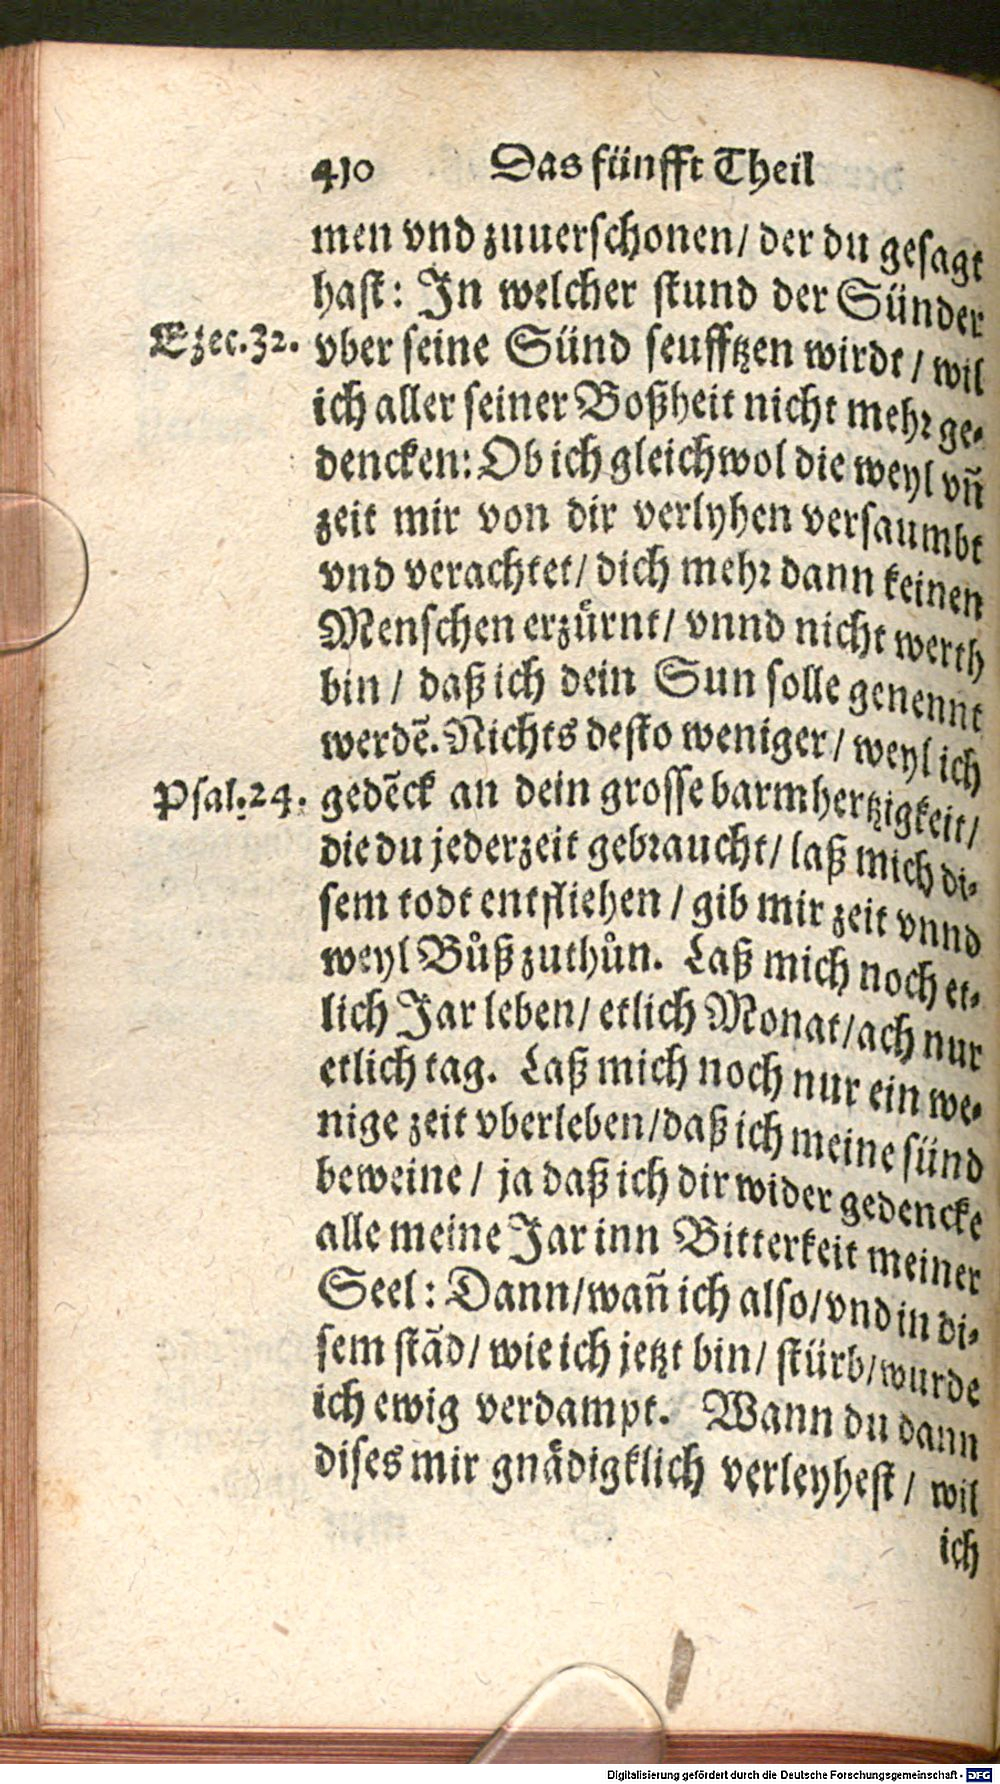 410 Das fünfft Theil
men vnd zuuerschonen/ der du gesagt
hast: In welcher stund der Sünder
Ezec.32. vber seine Sünd seufftzen wirdt / wil
ich aller seiner Boßheit nicht mehr ge-
dencken: Ob ich gleichwol die weyl vñ
zeit mir von dir verlyhen versaumbt
vnd verachtet/ dich mehr dann keinen
Menschen erzürnt/ vnnd nicht werth
bin / daß ich dein Sun solle genennt
werdẽ. Nichts desto weniger/ weyl ich
Psal.24. gedẽck an dein grosse barmhertzigkeit/
die du jederzeit gebraucht/ laß mich di-
sem todt entfliehen / gib mir zeit vnnd
weyl Bůß zuthůn. Laß mich noch et-
lich Jar leben/ etlich Monat/ach nur
etlich tag. Laß mich noch nur ein we-
nige zeit vberleben/daß ich meine sünd
beweine / ja daß ich dir wider gedencke
alle meine Jar inn Bitterkeit meiner
Seel: Dann/wañ ich also/vnd in di-
sem stãd/ wie ich jetzt bin/ stürb/wurde
ich ewig verdampt. Wann du dann
dises mir gnädigklich verleyhest / wil
ich
Digitalisierung gefördert durch die Deutsche Forschungsgemeinschaft - DFG